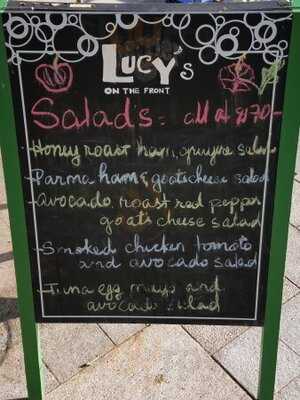 LUCY's
ON THE FRONT
Salads: all at £8.70
Honey roast ham, gruyere salad
Parma ham & goats cheese salad
avocado, roast red pepper
goats cheese salad
Smoked chicken tomato
and avocado salad
Tuna egg mayo and
avocado salad